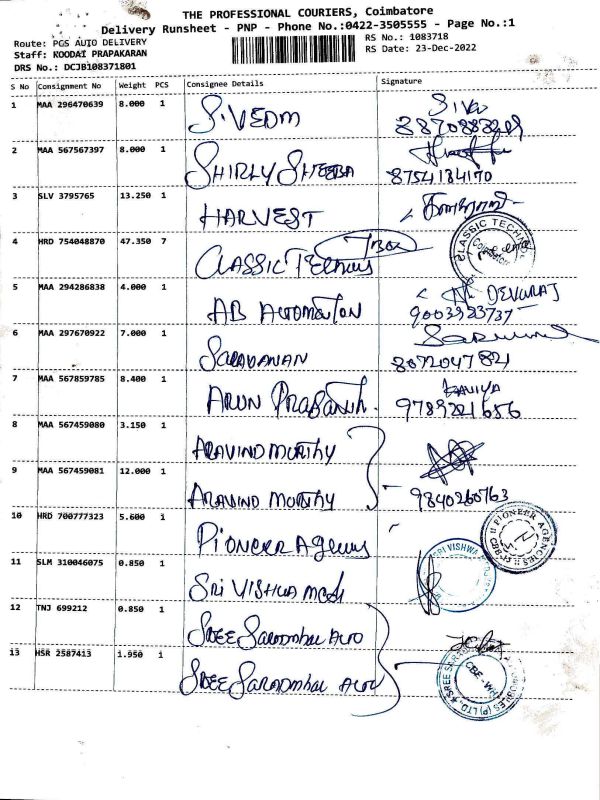 THE PROFESSIONAL COURIERS, Coimbatore
Delivery Runsheet - PNP - Phone No.:0422-3505555 - Page No.:1
Route: PGS AUTO DELIVERY
RS No.: 1083718
Staff: KOODAI PRAPAKARAN
RS Date: 23-Dec-2022
DRS No.: DCJB108371801
S No Consignment No Weight PCS Consignee Details Signature
1 MAA 296470639 8.000 1 S.VEDM Siva
2 MAA 567567397 8.000 1 SHIRLY SHEEBA
8754134170
3 SLV 3795765 13.250 1 HARVEST
4 HRD 754048870 47.350 7 CLASSIC CLASSIC
Coimbatore
5 MAA 294286838 4.000 1 AB AUTOMATION DEVARAJ
9003923737
6 MAA 297670922 7.000 1 SARAVANAN
8072047821
7 MAA 567859785 8.400 1 ARUN KANIYA
9789221656
8 MAA 567459080 3.150 1 ARAVIND MURTHY
9 MAA 567459081 12.000 1 ARAVIND MURTHY
9840260763
10 HRD 700777323 5.600 1 PIONEER PIONEER AGENCIES
11 SLM 310046075 0.850 1 SRI VISHWA SRI VISHWA
12 TNJ 699212 0.850 1 SREE
13 HSR 2587413 1.950 1 SREE
SREE (P) LTD.